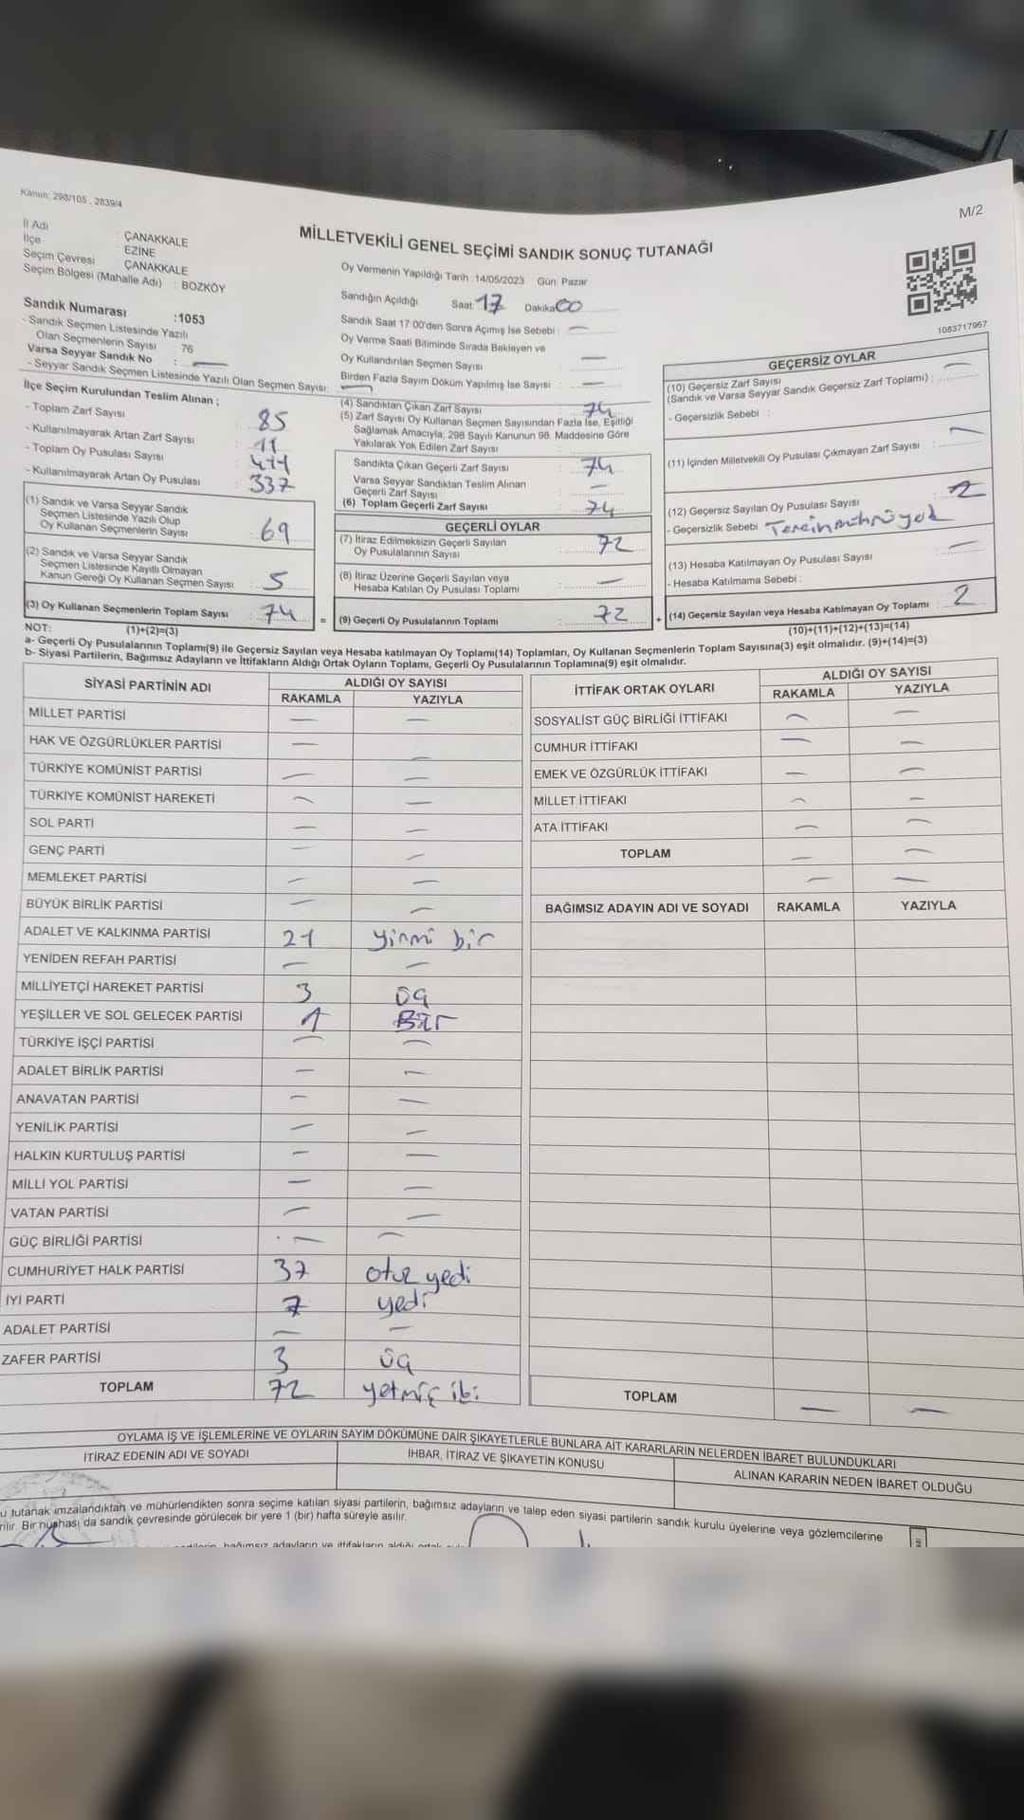 Kanun: 298/105 , 2839/4
M/2
MİLLETVEKİLİ GENEL SEÇİMİ SANDIK SONUÇ TUTANAĞI
İl Adı : ÇANAKKALE
İlçe : EZİNE
Seçim Çevresi : ÇANAKKALE
Seçim Bölgesi (Mahalle Adı) : BOZKÖY
Sandık Numarası :1053
- Sandık Seçmen Listesinde Yazılı
Olan Seçmenlerin Sayısı : 76
Varsa Seyyar Sandık No : —
- Seyyar Sandık Seçmen Listesinde Yazılı Olan Seçmen Sayısı: —
Oy Vermenin Yapıldığı Tarih :14/05/2023 Gün: Pazar
Sandığın Açıldığı Saat: 17 Dakika: 00
Sandık Saat 17 00'den Sonra Açımış İse Sebebi : —
Oy Verme Saati Bitiminde Sırada Bekleyen ve
Oy Kullandırılan Seçmen Sayısı : —
Birden Fazla Sayım Döküm Yapılmış İse Sayısı : —
1083717967
İlçe Seçim Kurulundan Teslim Alınan ;
- Toplam Zarf Sayısı : 85
- Kullanılmayarak Artan Zarf Sayısı : 11
- Toplam Oy Pusulası Sayısı : 411
- Kullanılmayarak Artan Oy Pusulası : 337
(1) Sandık ve Varsa Seyyar Sandık
Seçmen Listesinde Yazılı Olup
Oy Kullanan Seçmenlerin Sayısı : 69
(2) Sandık ve Varsa Seyyar Sandık
Seçmen Listesinde Kayıtlı Olmayan
Kanun Gereği Oy Kullanan Seçmen Sayısı : 5
(3) Oy Kullanan Seçmenlerin Toplam Sayısı : 74
(4) Sandıktan Çıkan Zarf Sayısı : 74
(5) Zarf Sayısı Oy Kullanan Seçmen Sayısından Fazla İse, Eşitliği
Sağlamak Amacıyla; 298 Sayılı Kanunun 98. Maddesine Göre
Yakılarak Yok Edilen Zarf Sayısı :
Sandıkta Çıkan Geçerli Zarf Sayısı : 74
Varsa Seyyar Sandıktan Teslim Alınan
Geçerli Zarf Sayısı : —
(6) Toplam Geçerli Zarf Sayısı : 74
GEÇERLİ OYLAR
(7) İtiraz Edilmeksizin Geçerli Sayılan
Oy Pusulalarının Sayısı : 72
(8) İtiraz Üzerine Geçerli Sayılan veya
Hesaba Katılan Oy Pusulası Toplamı : —
= (9) Geçerli Oy Pusulalarının Toplamı : 72
GEÇERSİZ OYLAR
(10) Geçersiz Zarf Sayısı
(Sandık ve Varsa Seyyar Sandık Geçersiz Zarf Toplamı) : —
- Geçersizlik Sebebi :
(11) İçinden Milletvekili Oy Pusulası Çıkmayan Zarf Sayısı : —
(12) Geçersiz Sayılan Oy Pusulası Sayısı : 2
- Geçersizlik Sebebi : Tercih mührü yok
(13) Hesaba Katılmayan Oy Pusulası Sayısı : —
- Hesaba Katılmama Sebebi :
+ (14) Geçersiz Sayılan veya Hesaba Katılmayan Oy Toplamı : 2
NOT: (1)+(2)=(3) (10)+(11)+(12)+(13)=(14)
a- Geçerli Oy Pusulalarının Toplamı(9) ile Geçersiz Sayılan veya Hesaba katılmayan Oy Toplamı(14) Toplamları, Oy Kullanan Seçmenlerin Toplam Sayısına(3) eşit olmalıdır. (9)+(14)=(3)
b- Siyasi Partilerin, Bağımsız Adayların ve İttifakların Aldığı Ortak Oyların Toplamı, Geçerli Oy Pusulalarının Toplamına(9) eşit olmalıdır.
SİYASİ PARTİNİN ADI ALDIĞI OY SAYISI
RAKAMLA YAZIYLA
MİLLET PARTİSİ — —
HAK VE ÖZGÜRLÜKLER PARTİSİ — —
TÜRKİYE KOMÜNİST PARTİSİ — —
TÜRKİYE KOMÜNİST HAREKETİ — —
SOL PARTİ — —
GENÇ PARTİ — —
MEMLEKET PARTİSİ — —
BÜYÜK BİRLİK PARTİSİ — —
ADALET VE KALKINMA PARTİSİ 21 yirmi bir
YENİDEN REFAH PARTİSİ — —
MİLLİYETÇİ HAREKET PARTİSİ 3 üç
YEŞİLLER VE SOL GELECEK PARTİSİ 1 Bir
TÜRKİYE İŞÇİ PARTİSİ — —
ADALET BİRLİK PARTİSİ — —
ANAVATAN PARTİSİ — —
YENİLİK PARTİSİ — —
HALKIN KURTULUŞ PARTİSİ — —
MİLLİ YOL PARTİSİ — —
VATAN PARTİSİ — —
GÜÇ BİRLİĞİ PARTİSİ — —
CUMHURİYET HALK PARTİSİ 37 otuz yedi
İYİ PARTİ 7 yedi
ADALET PARTİSİ — —
ZAFER PARTİSİ 3 üç
TOPLAM 72 yetmiş iki
İTTİFAK ORTAK OYLARI ALDIĞI OY SAYISI
RAKAMLA YAZIYLA
SOSYALİST GÜÇ BİRLİĞİ İTTİFAKI — —
CUMHUR İTTİFAKI — —
EMEK VE ÖZGÜRLÜK İTTİFAKI — —
MİLLET İTTİFAKI — —
ATA İTTİFAKI — —
TOPLAM — —
BAĞIMSIZ ADAYIN ADI VE SOYADI RAKAMLA YAZIYLA
TOPLAM — —
OYLAMA İŞ VE İŞLEMLERİNE VE OYLARIN SAYIM DÖKÜMÜNE DAİR ŞİKAYETLERLE BUNLARA AİT KARARLARIN NELERDEN İBARET BULUNDUKLARI
İTİRAZ EDENİN ADI VE SOYADI İHBAR, İTİRAZ VE ŞİKAYETİN KONUSU ALINAN KARARIN NEDEN İBARET OLDUĞU
u tutanak imzalandıktan ve mühürlendikten sonra seçime katılan siyasi partilerin, bağımsız adayların ve talep eden siyasi partilerin sandık kurulu üyelerine veya gözlemcilerine
rilir. Bir nüshası da sandık çevresinde görülecek bir yere 1 (bir) hafta süreyle asılır.
bağımsız adayların ve ittifakların aldığı ortak